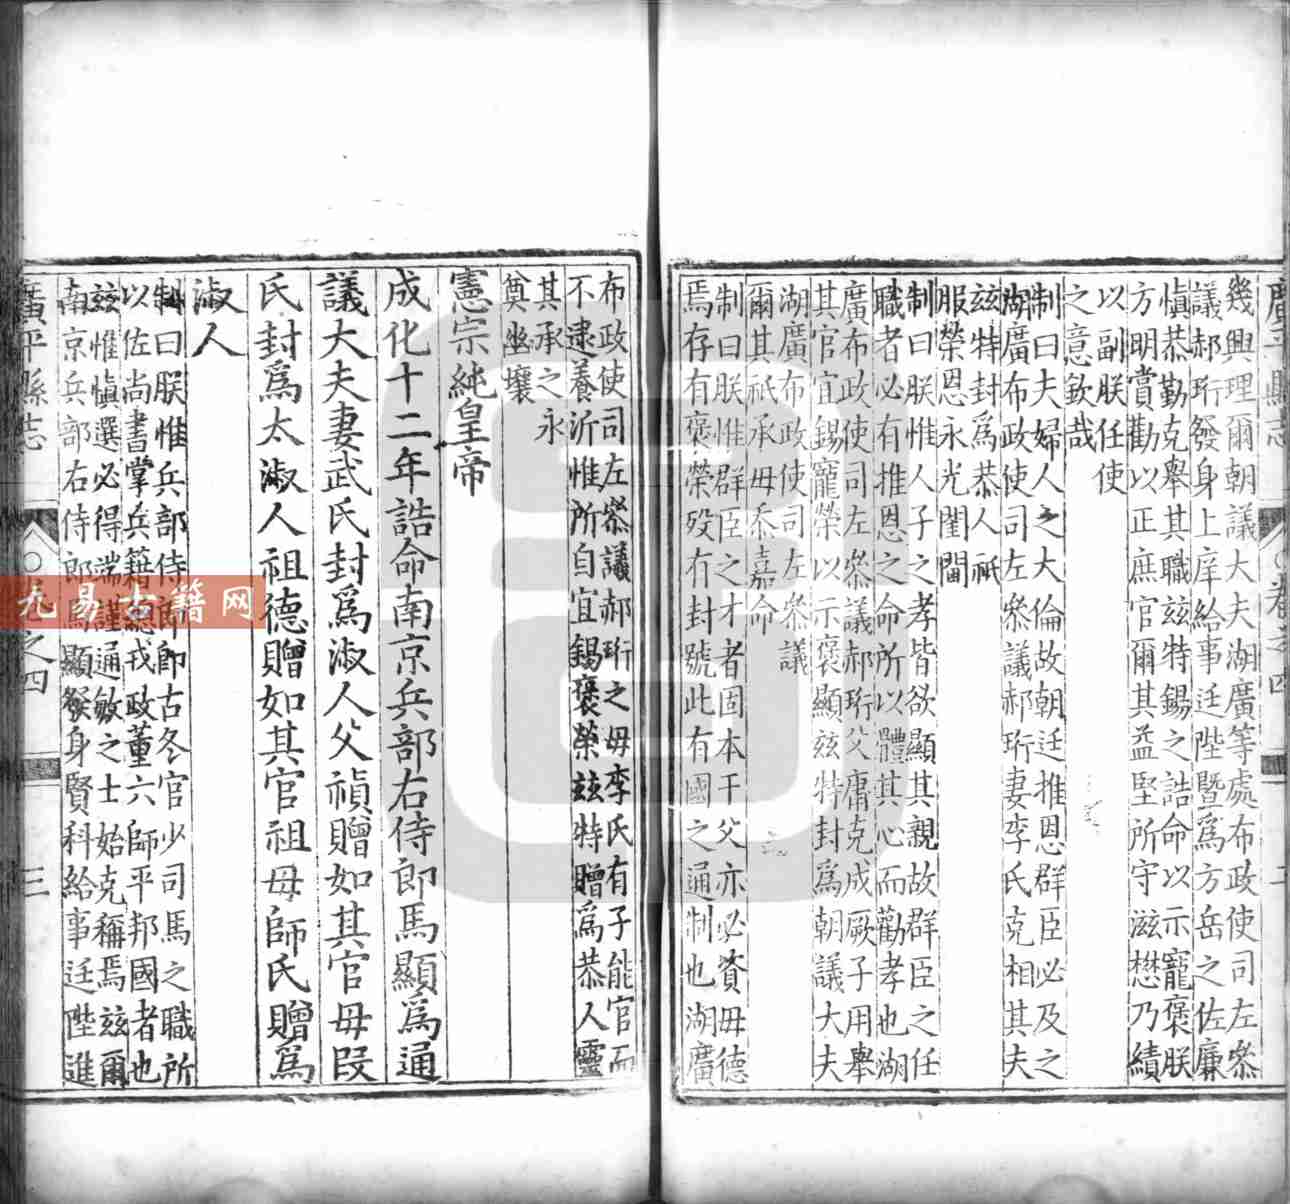 幾興理爾朝議大夫湖廣等處布政使司左叅
議郝珩發身上庠給事廷陛暨爲方岳之佐廉
愼恭勤克舉其職兹特錫之誥命以示寵褒朕
方明賞勸以正庶官爾其益堅所守滋懋乃績
以副朕任使
之意欽哉
制曰夫婦人之大倫故朝廷推恩群臣必及之
湖廣布政使司左叅議郝珩妻李氏克相其夫
兹特封爲恭人祇
服榮恩永光閨閫
制曰朕惟人子之孝皆欲顯其親故群臣之任
職者必有推恩之命所以體其心而勸孝也湖
廣布政使司左叅議郝珩父庸克成厥子用舉
其官宜錫寵榮以示褒顯兹特封爲朝議大夫
湖廣布政使司左叅議
爾其祇承毋忝嘉命
制曰朕惟群臣之才者固本于父亦必資毋德
焉存有褒榮殁有封號此有國之通制也湖廣
布政使司左叅議郝珩之毋李氏有子能官而
不逮養沂惟所自宜錫褒榮兹特贈爲恭人靈
其承之永
奠幽壤
憲宗純皇帝
成化十二年誥命南京兵部右侍郎馬顯爲通
議大夫妻武氏封爲淑人父禎贈如其官毋段
氏封爲太淑人祖德贈如其官祖毋師氏贈爲
淑人
制曰朕惟兵部侍郎即古冬官少司馬之職所
以佐尚書掌兵籍總戎政董六師平邦國者也
兹惟愼選必得端謹通敏之士始克稱焉兹爾
南京兵部右侍郎馬顯發身賢科給事廷陛進
廣平縣志
卷之四
三
九易古籍网